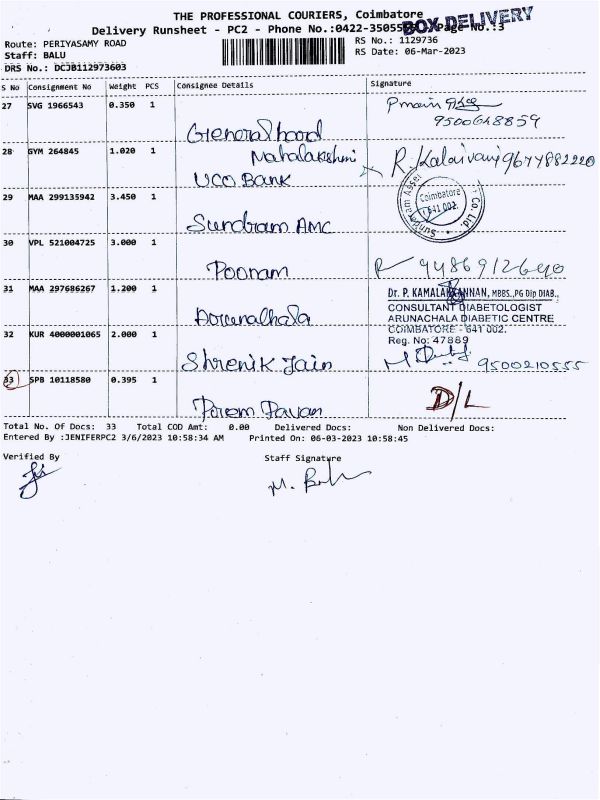 THE PROFESSIONAL COURIERS, Coimbatore
Delivery Runsheet - PC2 - Phone No.:0422-35055 Page No.:3
BOX DELIVERY
Route: PERIYASAMY ROAD
Staff: BALU
DRS No.: DCJB112973603
RS No.: 1129736
RS Date: 06-Mar-2023
S No Consignment No Weight PCS Consignee Details Signature
27 SVG 1966543 0.350 1
General hood
9500648859
28 GYM 264845 1.020 1
Mahalakshmi
UCO BANK
R. Kalaivani 9677882220
29 MAA 299135942 3.450 1
Sundram AMC
Coimbatore
641 002.
30 VPL 521004725 3.000 1
Poonam
R 9486912640
31 MAA 297686267 1.200 1
Dr. P. KAMALAKANNAN, MBBS.,PG Dip DIAB.,
CONSULTANT DIABETOLOGIST
ARUNACHALA DIABETIC CENTRE
COIMBATORE - 641 002.
Reg. No: 47889
32 KUR 4000001065 2.000 1
Shrenik Jain
9500210555
33 SPB 10118580 0.395 1
Prem Pavan
D/L
Total No. Of Docs: 33 Total COD Amt: 0.00 Delivered Docs: Non Delivered Docs:
Entered By :JENIFERPC2 3/6/2023 10:58:34 AM Printed On: 06-03-2023 10:58:45
Verified By Staff Signature